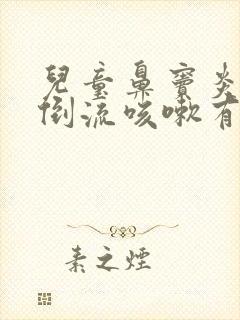 兒童鼻竇炎
倒流咳嗽有
素之煙